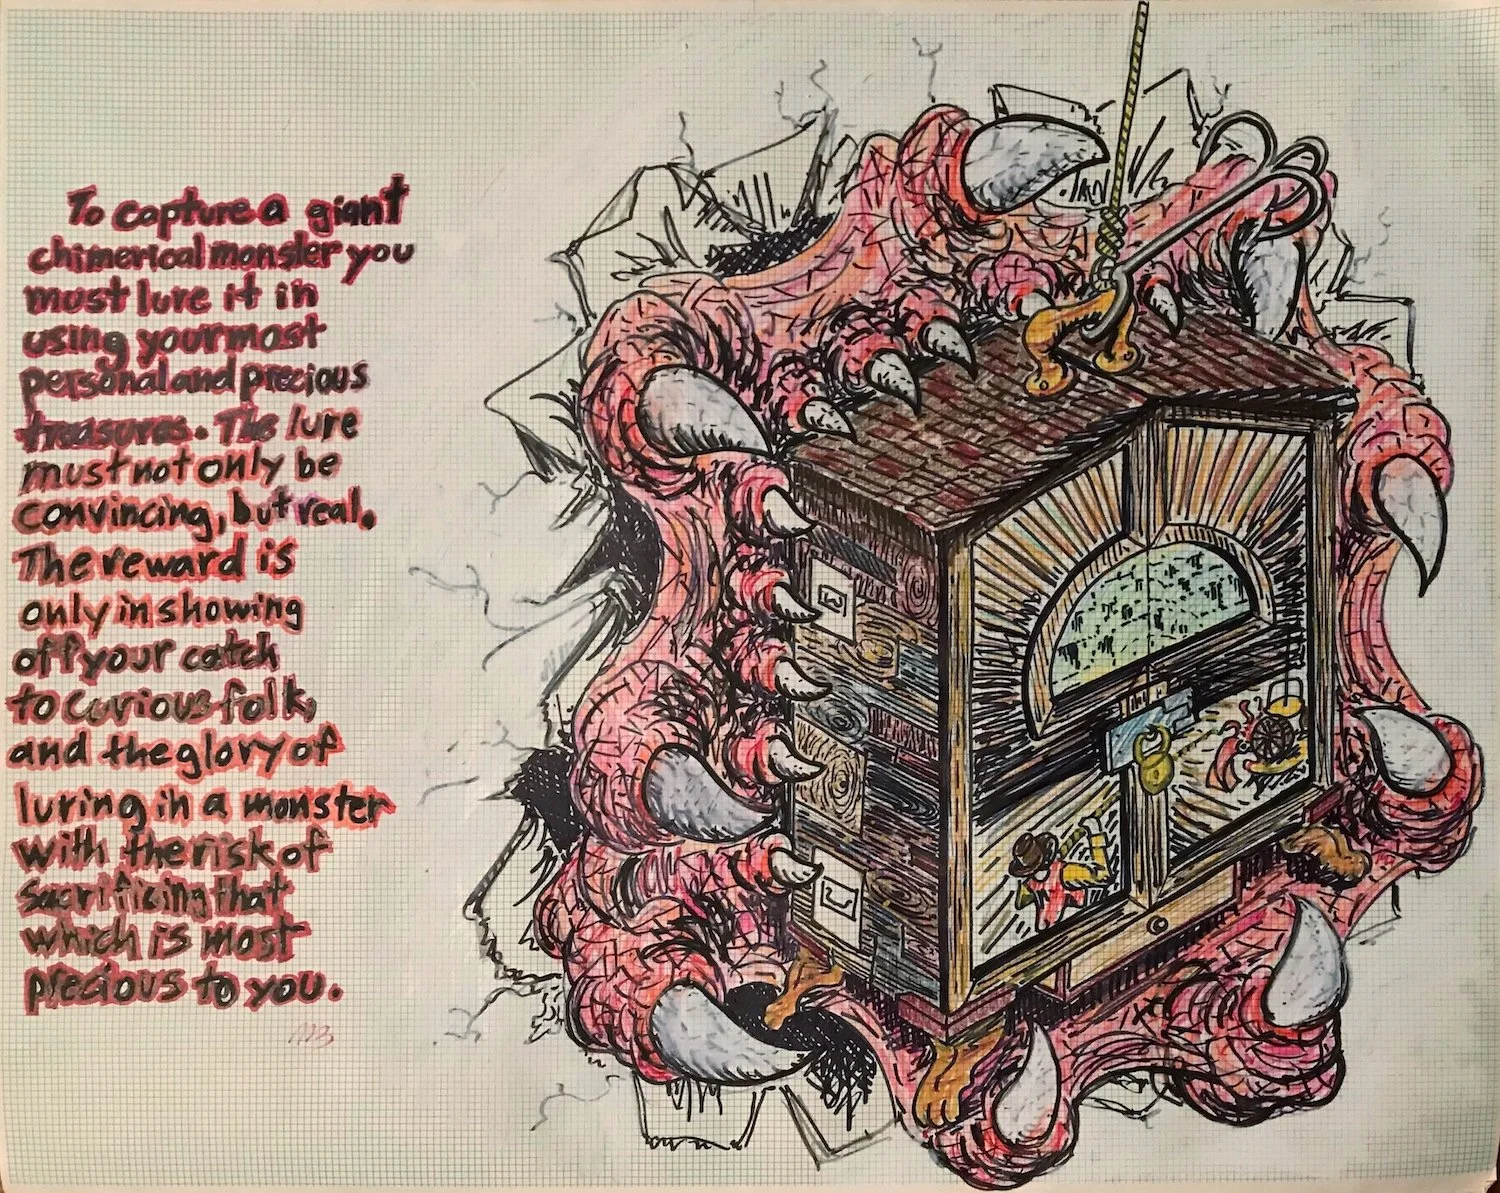 To capture a giant
chimerical monster you
must lure it in
using your most
personal and precious
treasures. The lure
must not only be
convincing, but real.
The reward is
only in showing
off your catch
to curious folk,
and the glory of
luring in a monster
with the risk of
sacrificing that
which is most
precious to you.